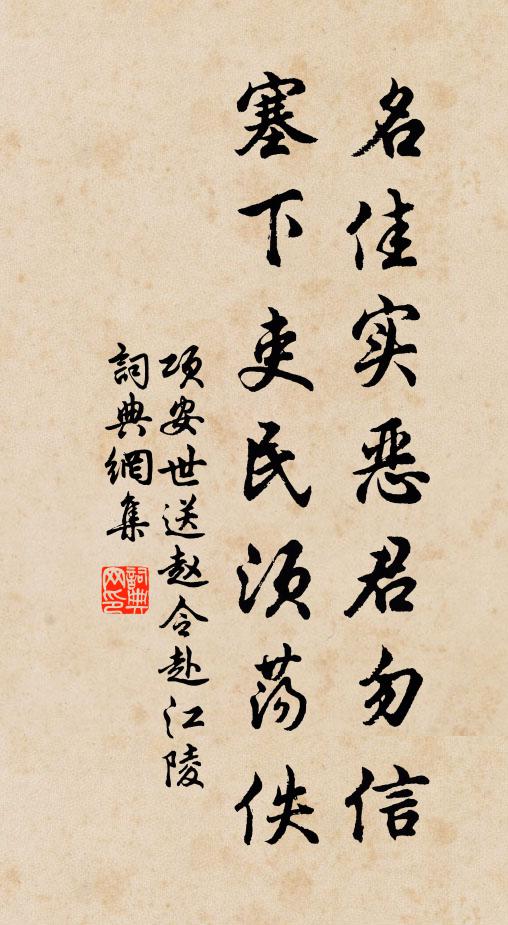 名佳实恶君勿信
塞下吏民须荡佚
项安世送赵令赴江陵
詞典網集
詞典网印